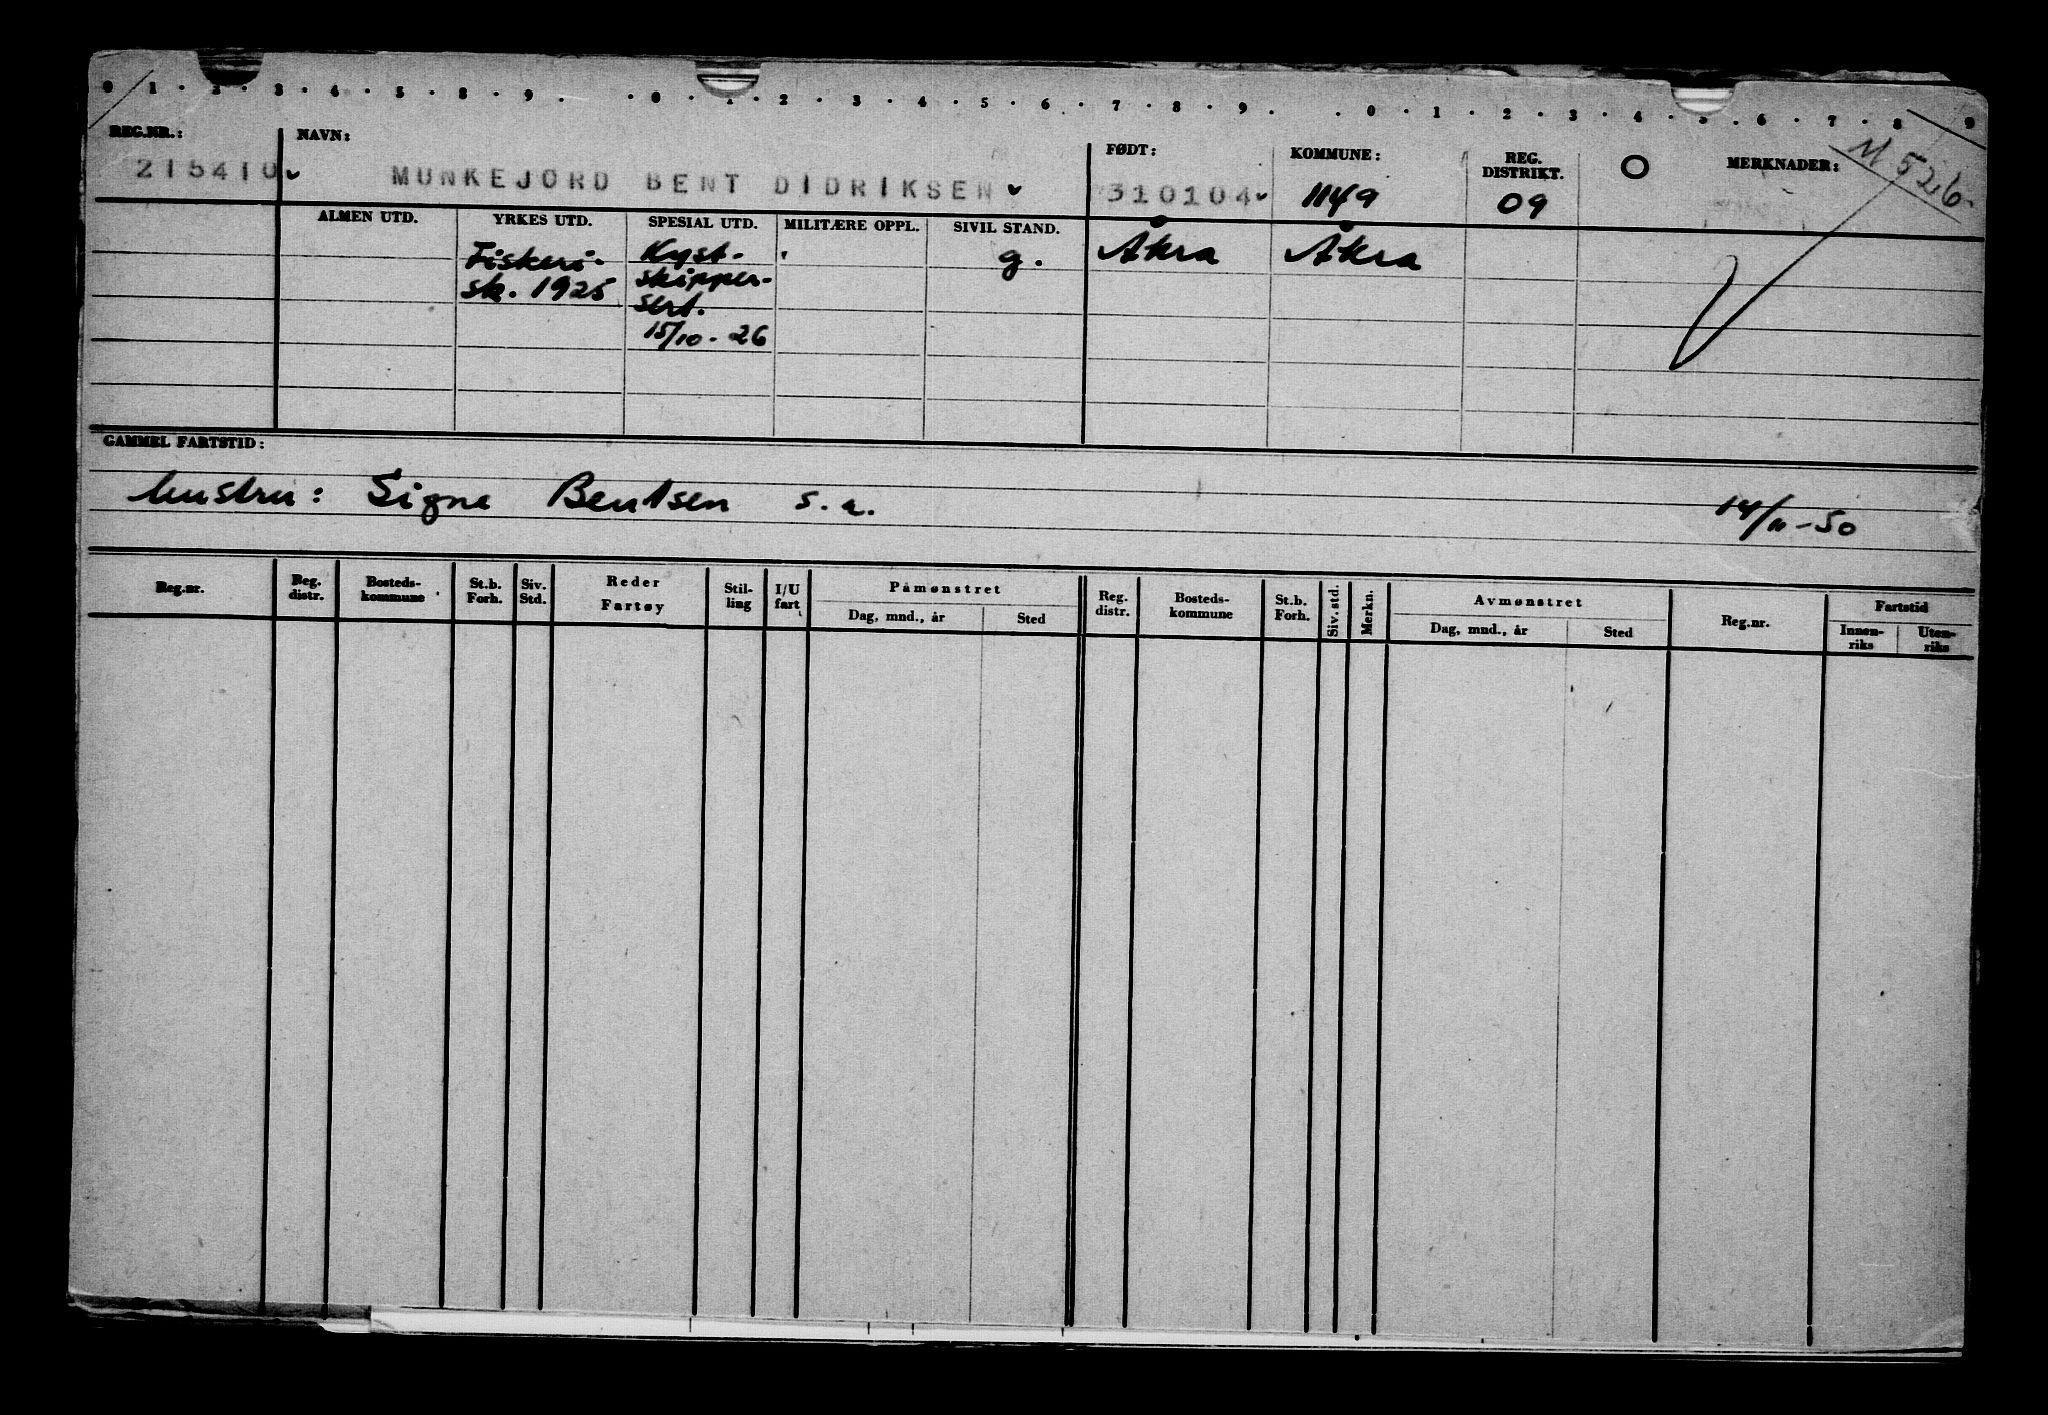 0 · 1 · 2 · 3 · 4 · 5 · 8 · 9 · · 0 · 1 · 2 · 3 · 4 · 5 · 6 · 7 · 8 · 9 · · 0 · 1 · 2 · 3 · 4 · 5 · 6 · 7 · 8 · 9
REG.NR.: NAVN: FØDT: KOMMUNE: REG. DISTRIKT. O MERKNADER: M 526.
215410 MUNKEJORD BENT DIDRIKSEN 310104 1149 09
ALMEN UTD. YRKES UTD. SPESIAL UTD. MILITÆRE OPPL. SIVIL STAND.
Fiskeri- Kyst- g. Åkra Åkra
sk. 1925 skipper-
sert.
15/10 - 26
GAMMEL FARTSTID:
hustru: Signe Bentsen s.a. 14/11-50
Reg.nr. Reg. distr. Bosteds-kommune St.b. Forh. Siv. Std. Reder Fartøy Stil-ling I/U fart Påmønstret Reg. distr. Bosteds-kommune St.b. Forh. Siv. std. Merkn. Avmønstret Reg.nr. Fartstid
Dag, mnd., år Sted Dag, mnd., år Sted Innen-riks Uten-riks